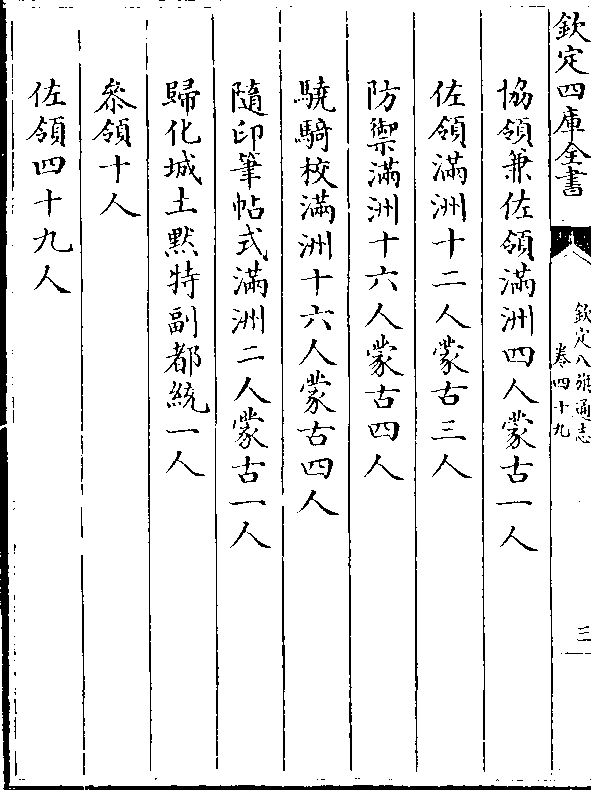 欽定四庫全書
欽定八旗通志
卷四十九
三
協領兼佐領滿洲四人蒙古一人
佐領滿洲十二人蒙古三人
防禦滿洲十六人蒙古四人
驍騎校滿洲十六人蒙古四人
隨印筆帖式滿洲二人蒙古一人
歸化城土黙特副都統一人
叅領十人
佐領四十九人